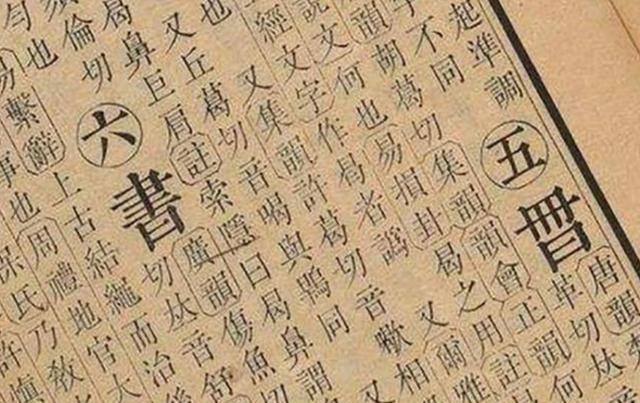 唐韻
起準調 五 曷
字不同
胡葛切集韻韻會正韻何
說文何也易損卦曷之用註
經文字作曷者譌又爾雅
也又集韻許葛切音歇相
又丘葛切音喝與鶡同又
曷鼻巨肩註索隱曰曷鼻謂
倫切 六 書
廣韻傷魚切
切𠀤音舒
也
易繫辭上古結繩而治後
事也周禮地官大
保氏乃教
許慎